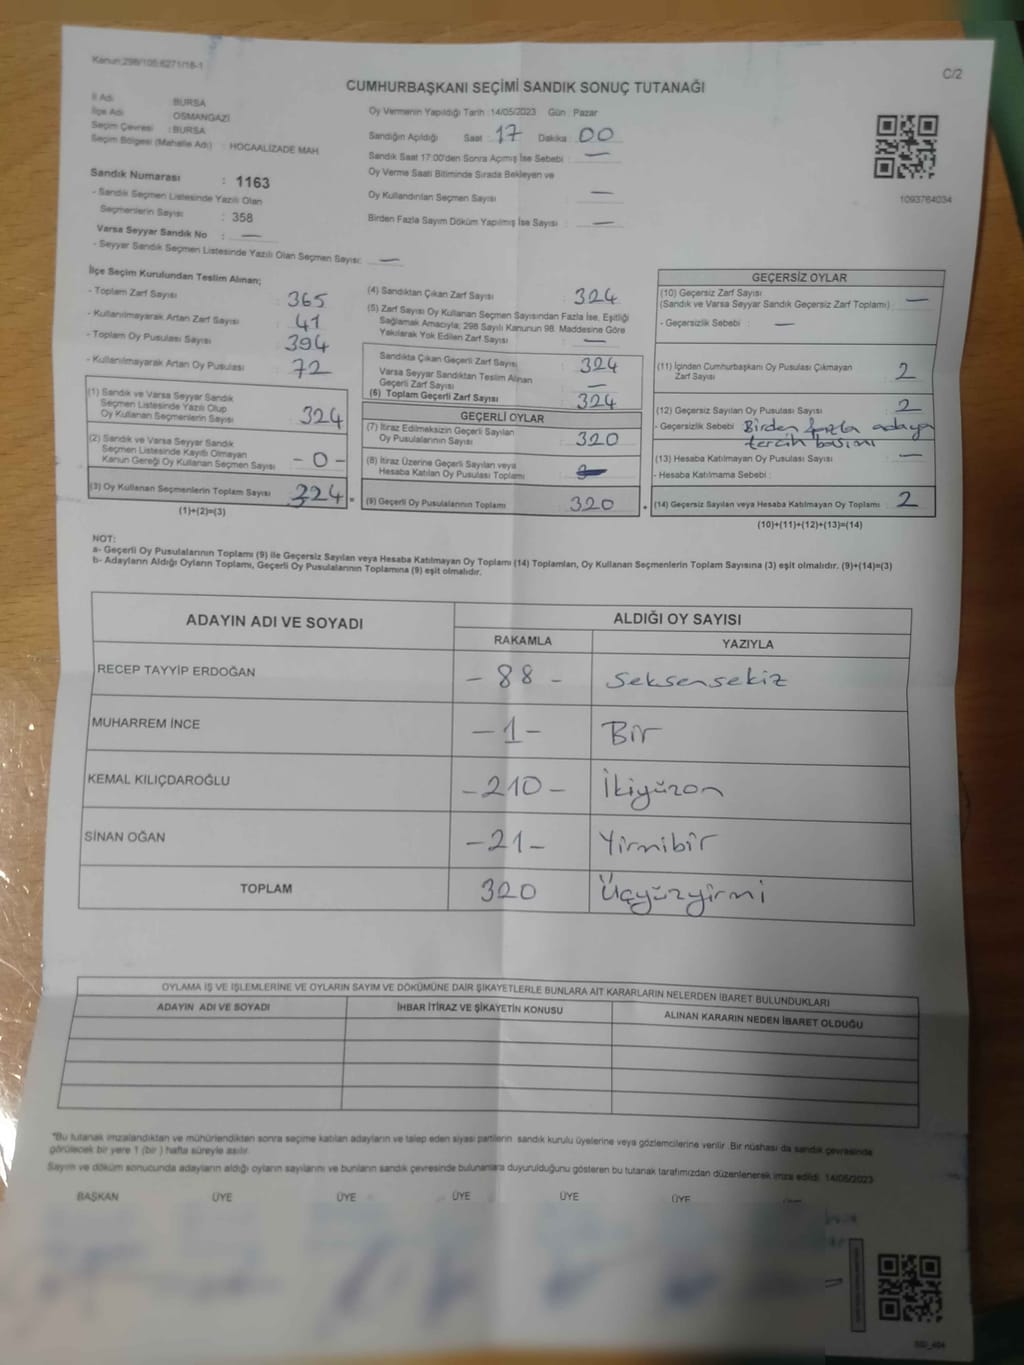 Kanun;298/105;6271/18-1
C/2
CUMHURBAŞKANI SEÇİMİ SANDIK SONUÇ TUTANAĞI
İl Adı : BURSA
İlçe Adı : OSMANGAZİ
Seçim Çevresi : BURSA
Seçim Bölgesi (Mahalle Adı) : HOCAALİZADE MAH.
Oy Vermenin Yapıldığı Tarih :14/05/2023 Gün : Pazar
Sandığın Açıldığı Saat : 17 Dakika : 00
Sandık Saat 17:00'den Sonra Açmış İse Sebebi : —
Oy Verme Saati Bitiminde Sırada Bekleyen ve
Oy Kullandırılan Seçmen Sayısı : —
Birden Fazla Sayım Döküm Yapılmış İse Sayısı : —
1093764034
Sandık Numarası : 1163
- Sandık Seçmen Listesinde Yazılı Olan
Seçmenlerin Sayısı : 358
Varsa Seyyar Sandık No : —
- Seyyar Sandık Seçmen Listesinde Yazılı Olan Seçmen Sayısı: —
İlçe Seçim Kurulundan Teslim Alınan;
- Toplam Zarf Sayısı : 365
- Kullanılmayarak Artan Zarf Sayısı : 41
- Toplam Oy Pusulası Sayısı : 394
- Kullanılmayarak Artan Oy Pusulası : 72
(1) Sandık ve Varsa Seyyar Sandık
Seçmen Listesinde Yazılı Olup
Oy Kullanan Seçmenlerin Sayısı : 324
(2) Sandık ve Varsa Seyyar Sandık
Seçmen Listesinde Kayıtlı Olmayan
Kanun Gereği Oy Kullanan Seçmen Sayısı : - 0 -
(3) Oy Kullanan Seçmenlerin Toplam Sayısı : 324
(1)+(2)=(3)
(4) Sandıktan Çıkan Zarf Sayısı : 324
(5) Zarf Sayısı Oy Kullanan Seçmen Sayısından Fazla İse, Eşitliği
Sağlamak Amacıyla; 298 Sayılı Kanunun 98. Maddesine Göre
Yakılarak Yok Edilen Zarf Sayısı : —
Sandıkta Çıkan Geçerli Zarf Sayısı : 324
Varsa Seyyar Sandıktan Teslim Alınan
Geçerli Zarf Sayısı : —
(6) Toplam Geçerli Zarf Sayısı : 324
GEÇERLİ OYLAR
(7) İtiraz Edilmeksizin Geçerli Sayılan
Oy Pusulalarının Sayısı : 320
(8) İtiraz Üzerine Geçerli Sayılan veya
Hesaba Katılan Oy Pusulası Toplamı :
(9) Geçerli Oy Pusulalarının Toplamı : 320
GEÇERSİZ OYLAR
(10) Geçersiz Zarf Sayısı : —
(Sandık ve Varsa Seyyar Sandık Geçersiz Zarf Toplamı)
- Geçersizlik Sebebi : —
(11) İçinden Cumhurbaşkanı Oy Pusulası Çıkmayan
Zarf Sayısı : 2
(12) Geçersiz Sayılan Oy Pusulası Sayısı : 2
- Geçersizlik Sebebi : Birden fazla adaya
tercih basımı
(13) Hesaba Katılmayan Oy Pusulası Sayısı : —
- Hesaba Katılmama Sebebi :
(14) Geçersiz Sayılan veya Hesaba Katılmayan Oy Toplamı : 2
(10)+(11)+(12)+(13)=(14)
NOT:
a- Geçerli Oy Pusulalarının Toplamı (9) ile Geçersiz Sayılan veya Hesaba Katılmayan Oy Toplamı (14) Toplamları, Oy Kullanan Seçmenlerin Toplam Sayısına (3) eşit olmalıdır. (9)+(14)=(3)
b- Adayların Aldığı Oyların Toplamı, Geçerli Oy Pusulalarının Toplamına (9) eşit olmalıdır.
ADAYIN ADI VE SOYADI ALDIĞI OY SAYISI
RAKAMLA YAZIYLA
RECEP TAYYİP ERDOĞAN - 88 - Seksensekiz
MUHARREM İNCE - 1 - Bir
KEMAL KILIÇDAROĞLU - 210 - İkiyüzon
SİNAN OĞAN - 21 - Yirmibir
TOPLAM 320 Üçyüzyirmi
OYLAMA İŞ VE İŞLEMLERİNE VE OYLARIN SAYIM VE DÖKÜMÜNE DAİR ŞİKAYETLERLE BUNLARA AİT KARARLARIN NELERDEN İBARET BULUNDUKLARI
ADAYIN ADI VE SOYADI İHBAR İTİRAZ VE ŞİKAYETİN KONUSU ALINAN KARARIN NEDEN İBARET OLDUĞU
*Bu tutanak imzalandıktan ve mühürlendikten sonra seçime katılan adayların ve talep eden siyasi partilerin sandık kurulu üyelerine veya gözlemcilerine verilir. Bir nüshası da sandık çevresinde
görülecek bir yere 1 (bir ) hafta süreyle asılır.
Sayım ve döküm sonucunda adayların aldığı oyların sayılarını ve bunların sandık çevresinde bulunanlara duyurulduğunu gösteren bu tutanak tarafımızdan düzenlenerek imza edildi. 14/05/2023
BAŞKAN ÜYE ÜYE ÜYE ÜYE ÜYE